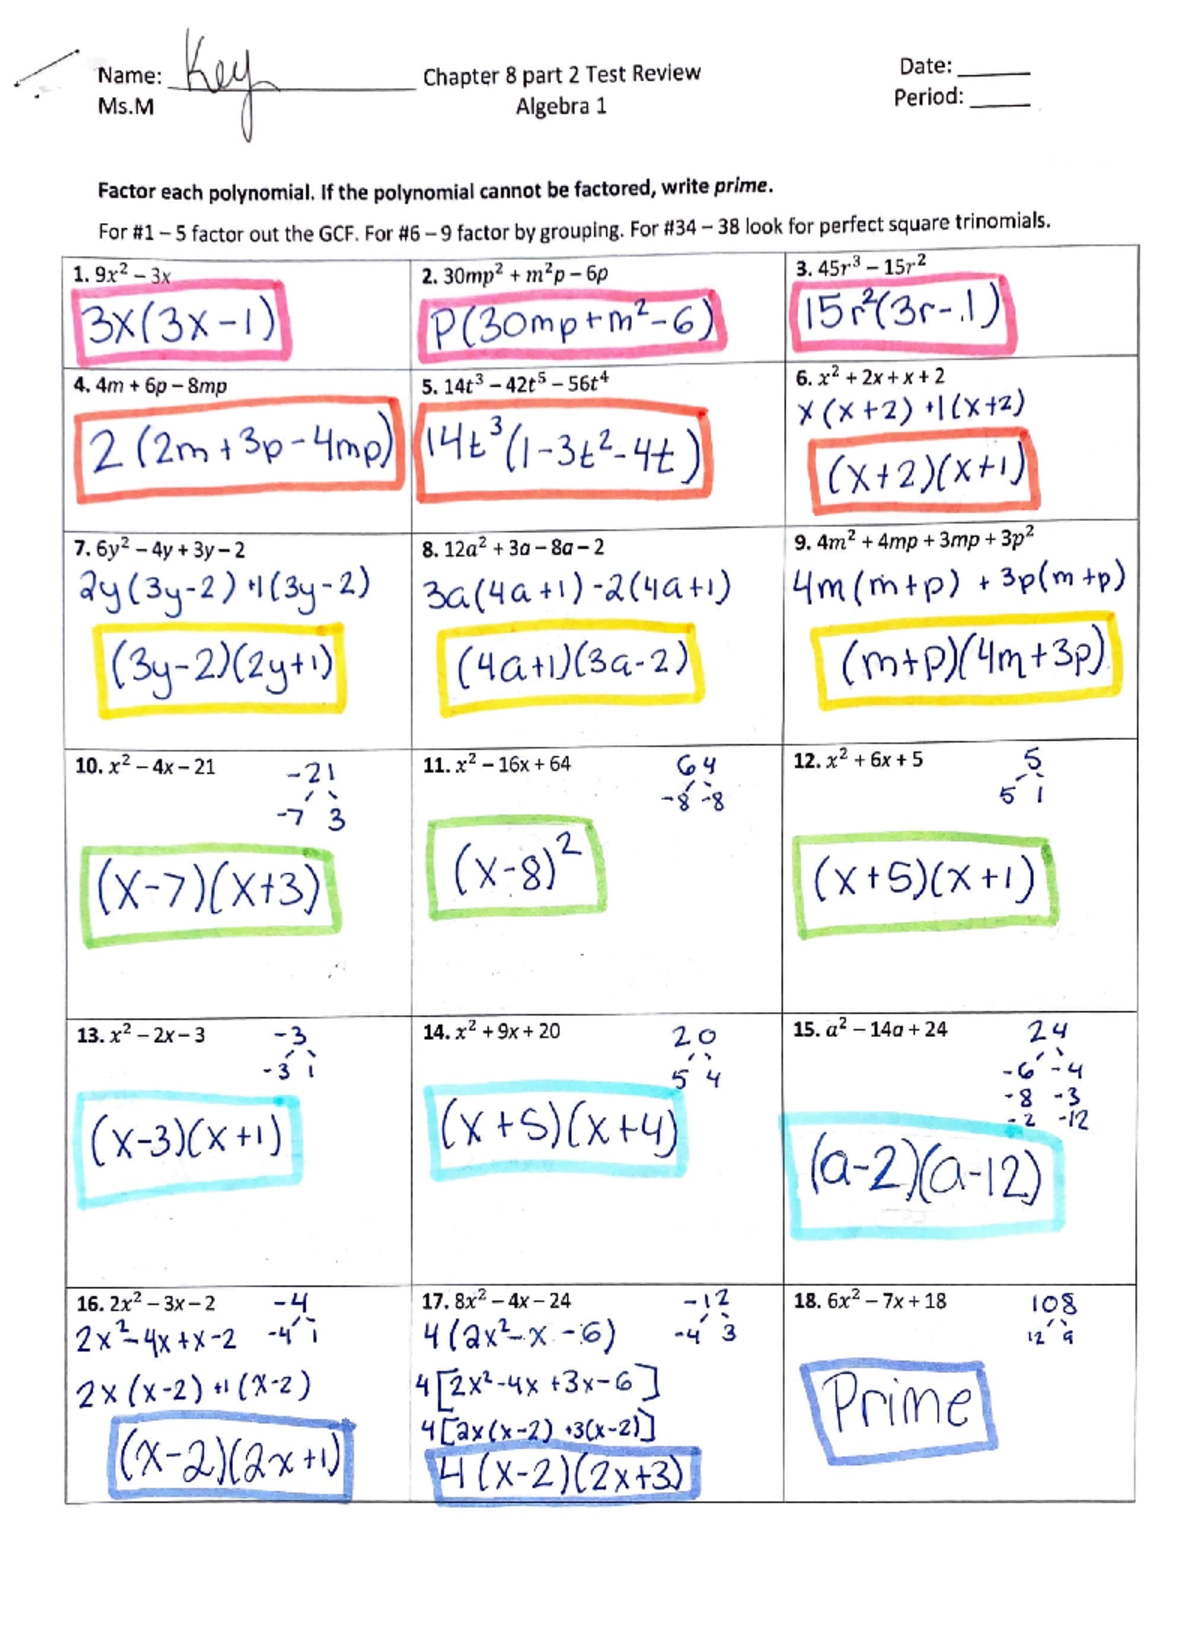 Name: Key Chapter 8 part 2 Test Review Date: ______
Ms.M Algebra 1 Period: _____
Factor each polynomial. If the polynomial cannot be factored, write prime.
For #1 – 5 factor out the GCF. For #6 – 9 factor by grouping. For #34 – 38 look for perfect square trinomials.
1. 9x² – 3x
3x(3x-1)
2. 30mp² + m²p – 6p
P(30mp+m²-6)
3. 45r³ – 15r²
15r²(3r-1)
4. 4m + 6p – 8mp
2(2m+3p-4mp)
5. 14t³ – 42t⁵ – 56t⁴
14t³(1-3t²-4t)
6. x² + 2x + x + 2
x(x+2) +1(x+2)
(x+2)(x+1)
7. 6y² – 4y + 3y – 2
2y(3y-2) +1(3y-2)
(3y-2)(2y+1)
8. 12a² + 3a – 8a – 2
3a(4a+1) -2(4a+1)
(4a+1)(3a-2)
9. 4m² + 4mp + 3mp + 3p²
4m(m+p) + 3p(m+p)
(m+p)(4m+3p)
10. x² – 4x – 21
-21
-7 3
(x-7)(x+3)
11. x² – 16x + 64
64
-8 -8
(x-8)²
12. x² + 6x + 5
5
5 1
(x+5)(x+1)
13. x² – 2x – 3
-3
-3 1
(x-3)(x+1)
14. x² + 9x + 20
20
5 4
(x+5)(x+4)
15. a² – 14a + 24
24
-6 -4
-8 -3
-2 -12
(a-2)(a-12)
16. 2x² – 3x – 2
-4
-4 1
2x²-4x+x-2
2x(x-2) +1(x-2)
(x-2)(2x+1)
17. 8x² – 4x – 24
-12
-4 3
4(2x²-x-6)
4[2x²-4x+3x-6]
4[2x(x-2) +3(x-2)]
4(x-2)(2x+3)
18. 6x² – 7x + 18
108
12 9
Prime